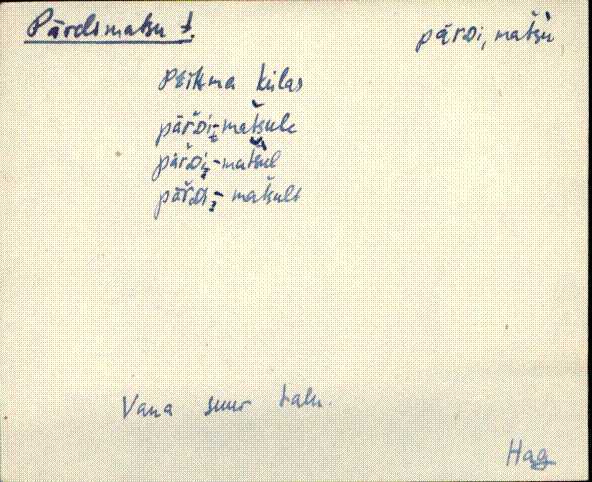 Pärdimatsu t. pärdi, matsu
Peitkma külas
pärdi-matsule
pärdi-matsul
pärdi-matsult
Vana suur talu.
Hag